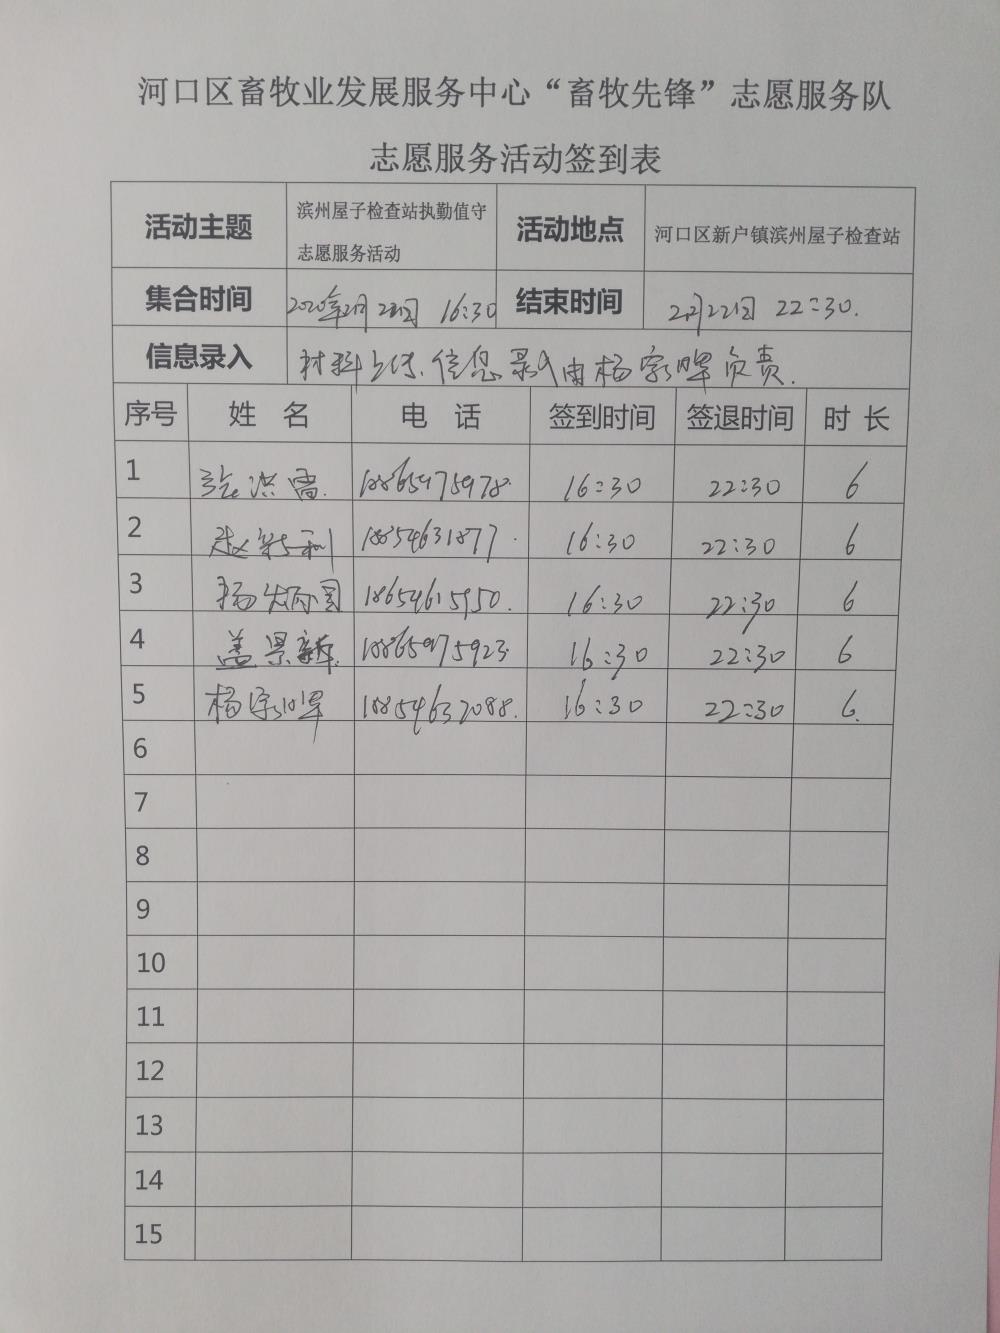 河口区畜牧业发展服务中心“畜牧先锋”志愿服务队
志愿服务活动签到表
活动主题 滨州屋子检查站执勤值守志愿服务活动 活动地点 河口区新户镇滨州屋子检查站
集合时间 2020年2月22日 16:30 结束时间 2月22日 22:30.
信息录入 材料上传、信息录入由杨家晖负责.
序号 姓 名 电 话 签到时间 签退时间 时 长
1 张洪 18865475978. 16:30 22:30 6
2 赵新利 18854631877. 16:30 22:30 6
3 杨 国 18654615950. 16:30 22:30 6
4 盖景新 18865475923. 16:30 22:30 6
5 杨家晖 18854632088. 16:30 22:30 6.
6
7
8
9
10
11
12
13
14
15